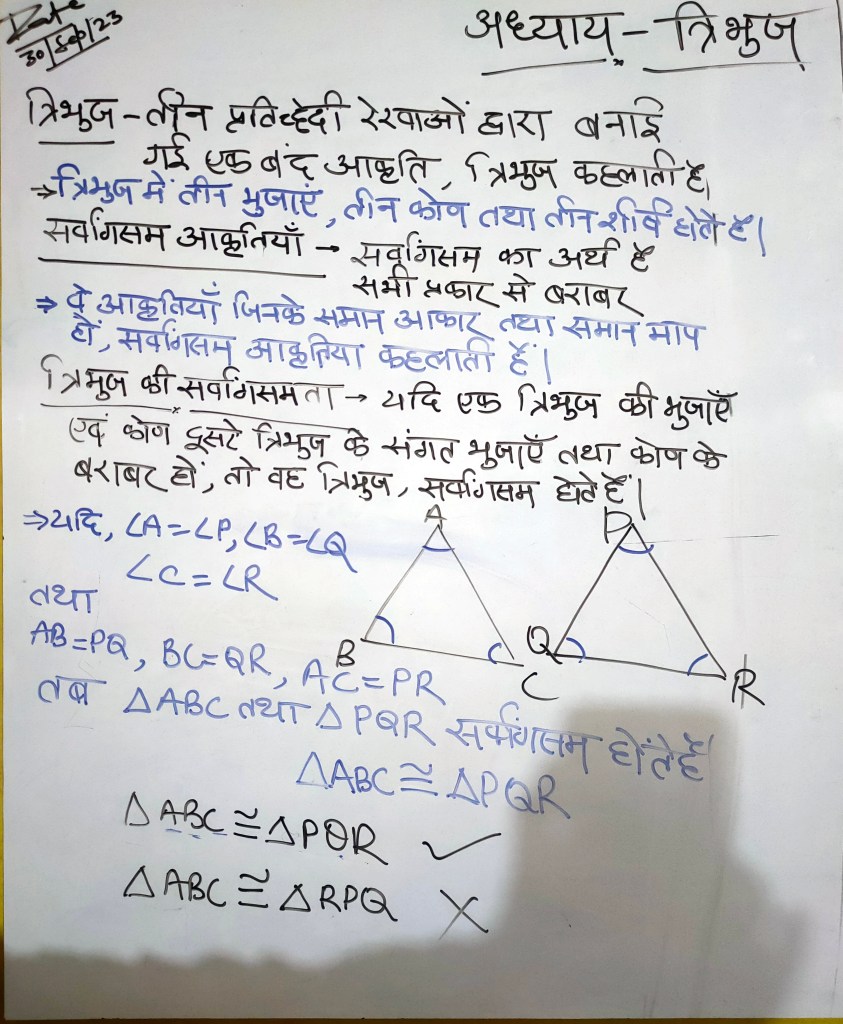 Date
30/Sep/23
अध्याय - त्रिभुज
त्रिभुज - तीन प्रतिच्छेदी रेखाओं द्वारा बनाई
गई एक बंद आकृति, त्रिभुज कहलाती है।
→ त्रिभुज में तीन भुजाएं, तीन कोण तथा तीन शीर्ष होते हैं।
सर्वांगसम आकृतियाँ → सर्वांगसम का अर्थ है
सभी प्रकार से बराबर
⇒ वे आकृतियाँ जिनके समान आकार तथा समान माप
हों, सर्वांगसम आकृतिया कहलाती हैं।
त्रिभुज की सर्वांगसमता → यदि एक त्रिभुज की भुजाएँ
एवं कोण दूसरे त्रिभुज के संगत भुजाएँ तथा कोण के
बराबर हों, तो वह त्रिभुज, सर्वांगसम होते हैं।
⇒ यदि, ∠A=∠P, ∠B=∠Q
∠C=∠R
तथा
AB=PQ, BC=QR, AC=PR
A
B
C
P
Q
R
तब △ABC तथा △PQR सर्वांगसम होंते हैं
△ABC≅△PQR
△ABC≅△PQR ✓
△ABC≅△RPQ X